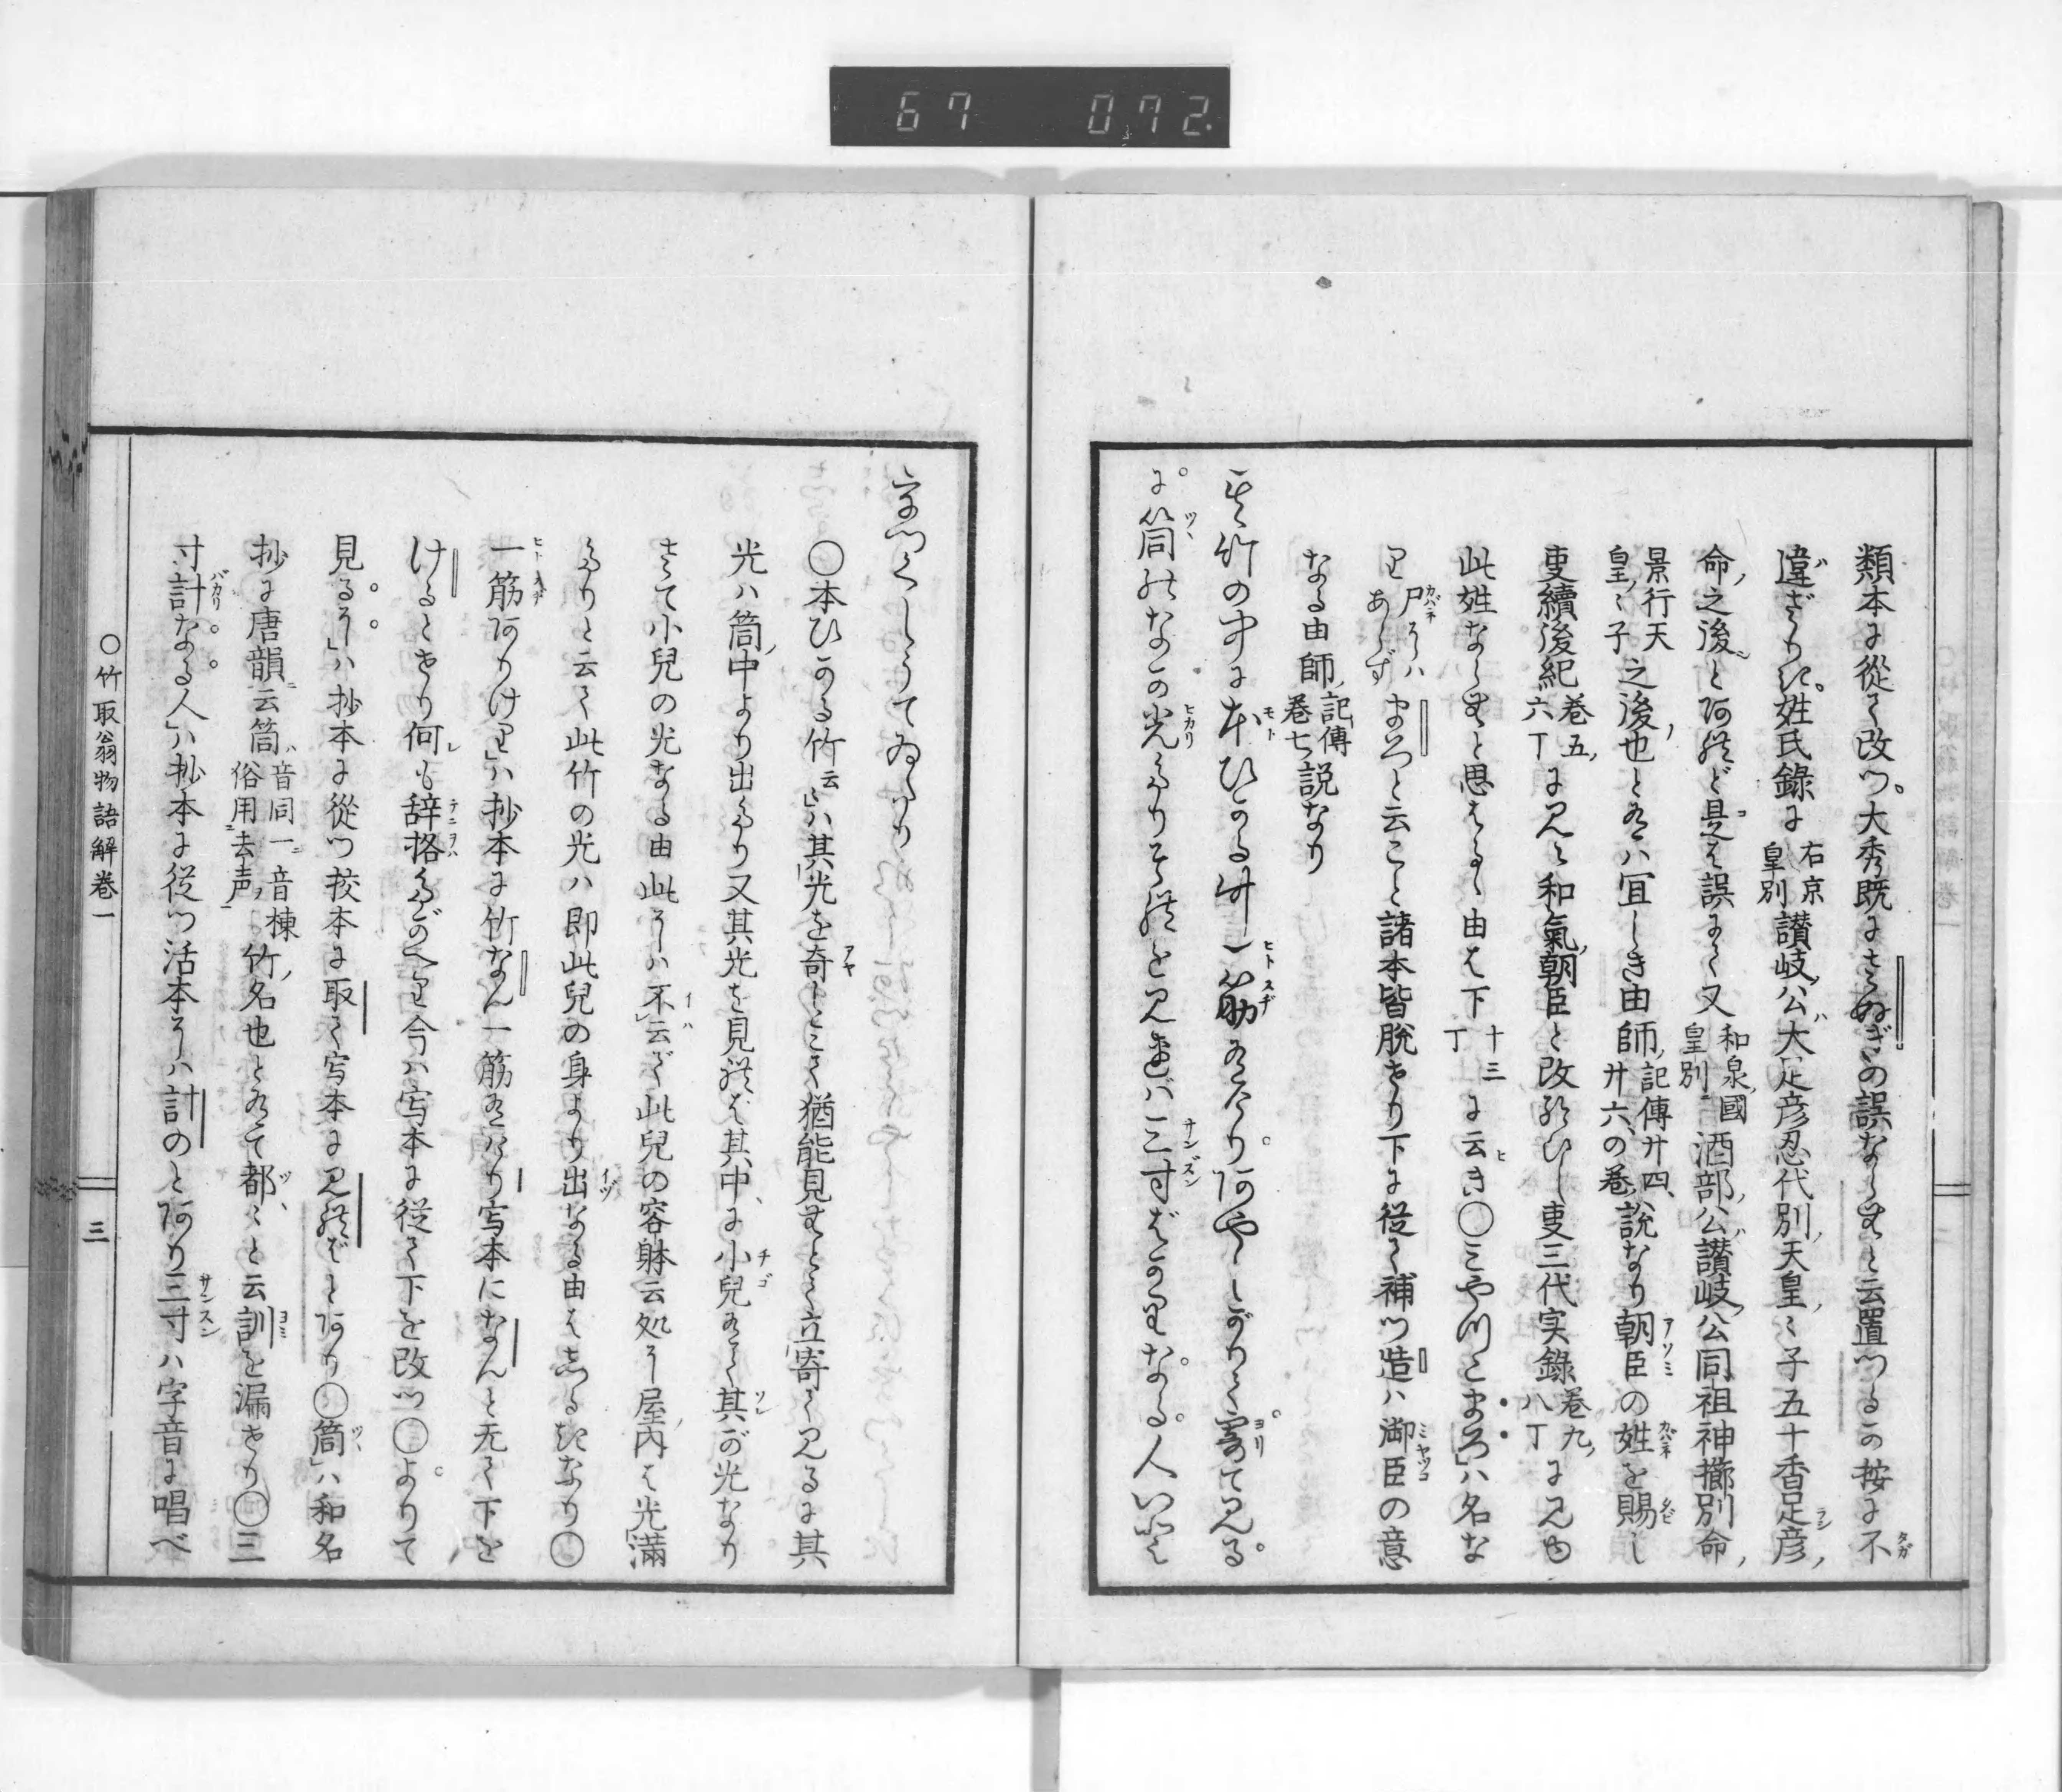 67 072.
類本に從て改つ大秀既にさぬぎの誤ならむと云置つるか按に不
違ざりき姓氏錄に右京皇別讃岐公大足彦忍代別天皇〻子五十香足彦
命之後とあれど是は誤にて又和泉國皇別酒部公讃岐公同祖神櫛別命
景行天皇〻子之後也とあるハ宜しき由師記傳廿四、廿六の巻説なり朝臣の姓を賜し
叓續後紀巻五六丁に見え和氣朝臣と改給ひし叓三代実錄巻九八丁に見ゆ
此姓ならむと思はるゝ由は下十三丁に云き〇みやつこまろハ名な
り尸にハあらずまろと云こと諸本皆脱せり下に從て補つ造ハ御臣の意
なる由師記傳巻七説なり
其竹の中に本ひかる竹一筋ありけりあやしがりて寄て見る
に筒のなか光たりそれを見れバ三寸ばかりなる人いと
うつくしうてゐたり
〇本ひかる竹云〻ハ其光を奇しとて猶能見むとて立寄て見るに其
光ハ筒中より出たり又其光を見れは其中に小兒ありて其が光なり
さて小兒の光なる由此にハ不云ど此兒の容躰云処に屋内は光滿
たりと云て此竹の光ハ即此兒の身より出なる由はしるきなり〇
一筋ありけりハ抄本に竹なん一筋ありけり写本になんと无て下を
けるとせり何も辞格たがへり今ハ写本に従て下を改つ〇よりて
見るにハ抄本に從つ挍本に取て写本に見ればとあり〇筒ハ和名
抄に唐韻云筒音同一音棟俗用去声竹名也とありて都〻と云訓を漏せり〇三
寸計なる人ハ抄本に従つ活本にハ計のとあり三寸ハ字音に唱べ
〇竹取翁物語解巻一
三